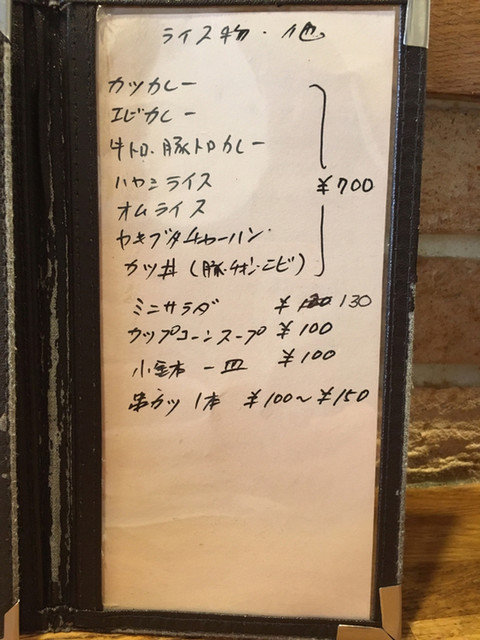 ライス物・他
カツカレー
エビカレー
牛トロ、豚トロカレー
ハヤシライス
¥700
オムライス
ヤキブタチャーハン
カツ丼(豚・チキン・エビ)
ミニサラダ ¥130
カップコーンスープ ¥100
小鉢 一皿 ¥100
串カツ 1本 ¥100〜¥150